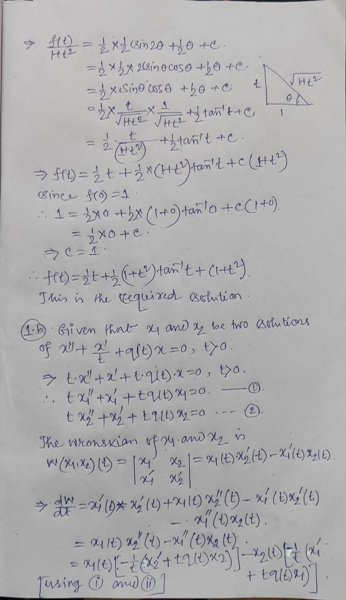 ⇒ f(t)/1+t² = 1/2 × 1/2 sin2θ + 1/2 θ + c.
= 1/2 × 1/2 × 2sinθ cosθ + 1/2 θ + c.
= 1/2 × sinθ cosθ + 1/2 θ + c.
= 1/2 × t/√1+t² × 1/√1+t² + 1/2 tan⁻¹t + c.
= 1/2 · t/(1+t²) + 1/2 tan⁻¹t + c.
t √1+t² θ 1
⇒ f(t) = 1/2 t + 1/2 × (1+t²) tan⁻¹t + c(1+t²)
Since f(0) = 1.
∴ 1 = 1/2 × 0 + 1/2 × (1+0) tan⁻¹0 + c(1+0)
= 1/2 × 0 + c.
⇒ c = 1.
∴ f(t) = 1/2 t + 1/2 (1+t²) tan⁻¹t + (1+t²).
This is the required solution.
1.b) Given that x₁ and x₂ be two solutions
of x'' + x'/t + q(t)x = 0, t>0.
⇒ t·x'' + x' + t·q(t)·x = 0, t>0.
∴ t x₁'' + x₁' + t q(t) x₁ = 0. —— ①.
t x₂'' + x₂' + t q(t) x₂ = 0 --- ②.
The wronskian of x₁ and x₂ is
W(x₁,x₂)(t) = | x₁ x₂ | = x₁(t) x₂'(t) - x₁'(t) x₂(t).
| x₁' x₂' |
⇒ dW/dt = x₁'(t) x₂'(t) + x₁(t) x₂''(t) - x₁'(t) x₂'(t)
- x₁''(t) x₂(t).
= x₁(t) x₂''(t) - x₁''(t) x₂(t)
= x₁(t) [-1/t (x₂' + t q(t) x₂)] - x₂(t) [-1/t (x₁'
+ t q(t) x₁)]
[using ⓘ and ⓘⓘ]